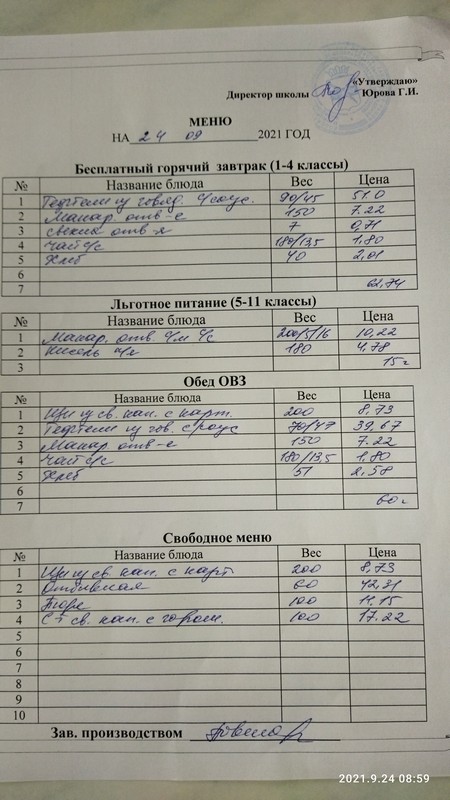 «Утверждаю»
Директор школы Юрова Г.И.
МЕНЮ
НА 24 09 2021 ГОД
Бесплатный горячий завтрак (1-4 классы)
№ Название блюда Вес Цена
1 Тефтели из говяд. с/соус. 90/45 51.0
2 Макар. отв-е 150 7.22
3 свекла отв-я 7 0,71
4 Чай с/с 180/13,5 1,80
5 Хлеб 40 2,01
6
7 62,74
Льготное питание (5-11 классы)
№ Название блюда Вес Цена
1 Макар. отв. с/м с/с 200/5/16 10,22
2 Кисель 180 4,78
3 15
Обед ОВЗ
№ Название блюда Вес Цена
1 Щи из св. кап. с карт. 200 8,73
2 Тефтели из гов. с соус 70/47 39,67
3 Макар. отв-е 150 7.22
4 Чай с/с 180/13,5 1,80
5 Хлеб 51 2,58
6
7 60
Свободное меню
№ Название блюда Вес Цена
1 Щи из св. кап. с карт 200 8,73
2 Отбивная 60 42,31
3 Пюре 100 11.15
4 С-т св. кап. с горош. 100 17.22
5
6
7
8
9
10
Зав. производством
2021.9.24 08:59